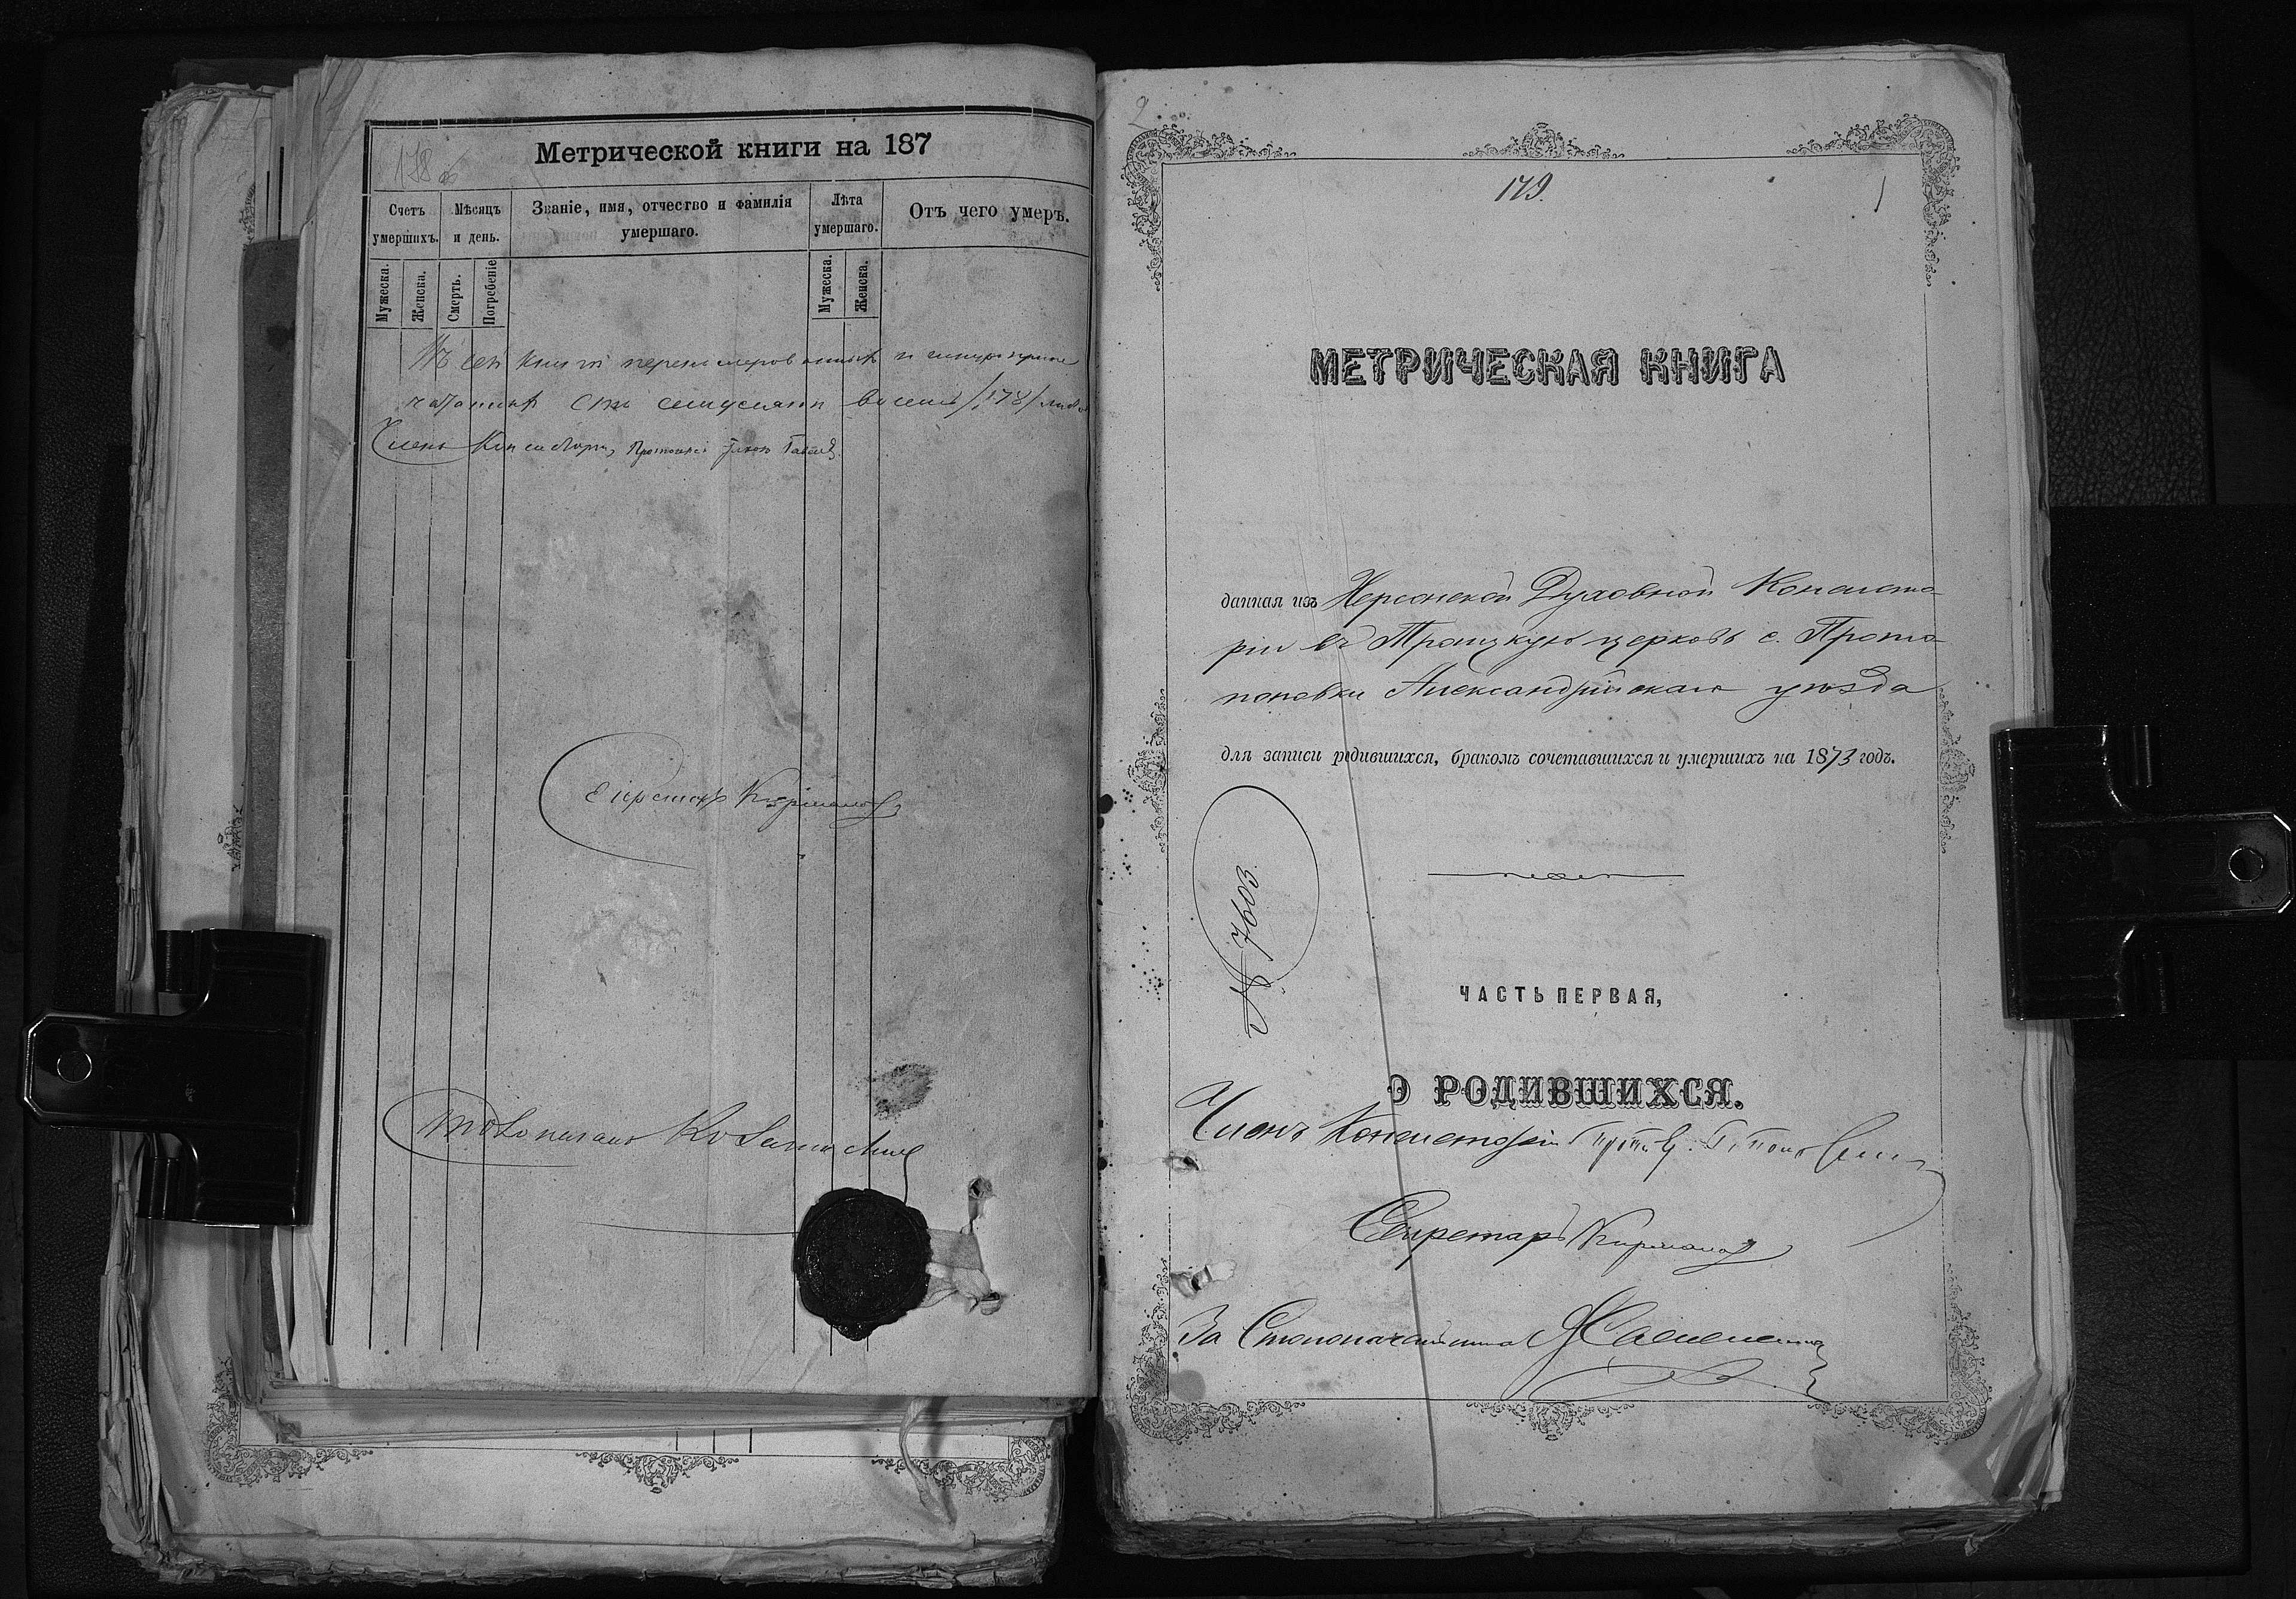 178 об
Метрической книги на 187
Счетъ умершихъ.
Мѣсяцъ и день.
Званіе, имя, отчество и фамилія умершаго.
Лѣта умершаго.
Отъ чего умеръ.
Мужеска.
Женска.
Смерть.
Погребеніе
Мужеска.
Женска.
Въ сей книгѣ перенумерованныхъ и шнуроприпе
чатанныхъ сто семьдесятъ восемь /178/ листо
Членъ Консисторіи, Протоіерей
Секретарь
Столоначальникъ
2
179.
1
МЕТРИЧЕСКАЯ КНИГА
данная изъ Херсонской Духовной Консисто
ріи въ Троицкую церковь с. Прото
поповки Александрійскаго уѣзда
для записи родившихся, бракомъ сочетавшихся и умершихъ на 1873 годъ.
№ 7603.
ЧАСТЬ ПЕРВАЯ,
О РОДИВШИХСЯ.
Членъ Консисторіи
Секретарь
За Столоначальника